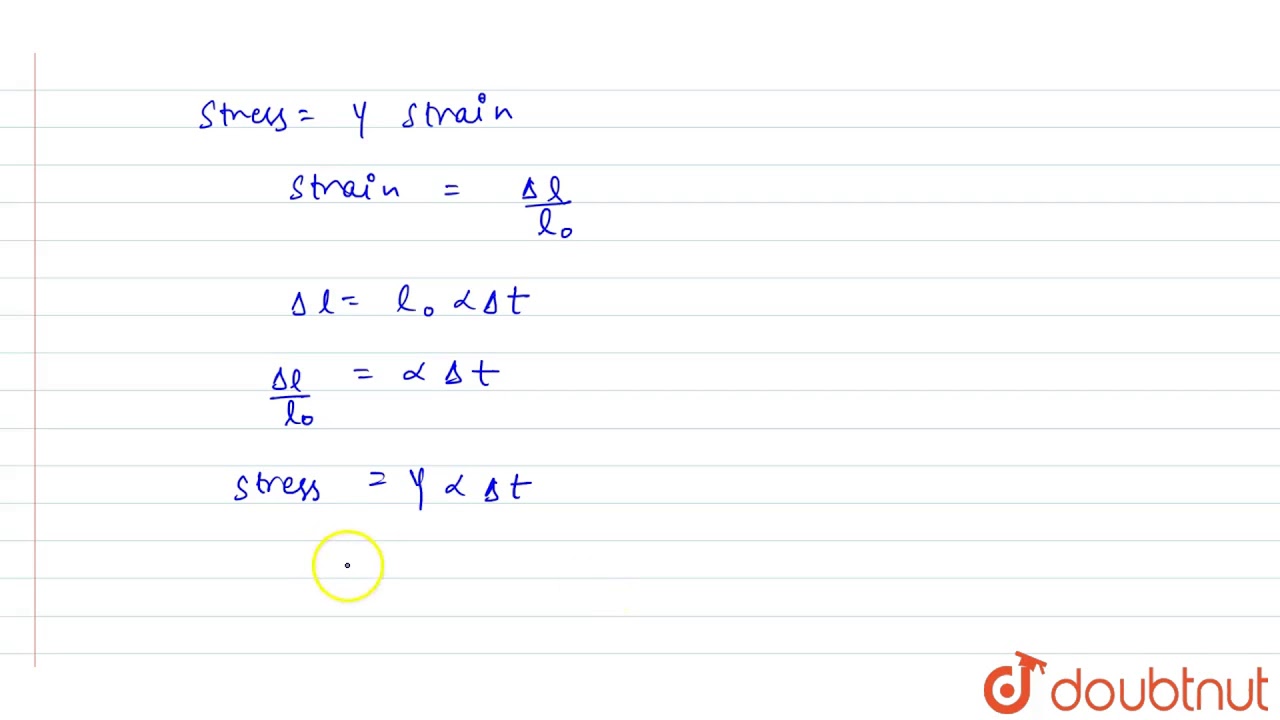 Stress = Y Strain
Strain = Δl/l₀
Δl = l₀ α Δt
Δl/l₀ = α Δt
Stress = Y α Δt
doubtnut